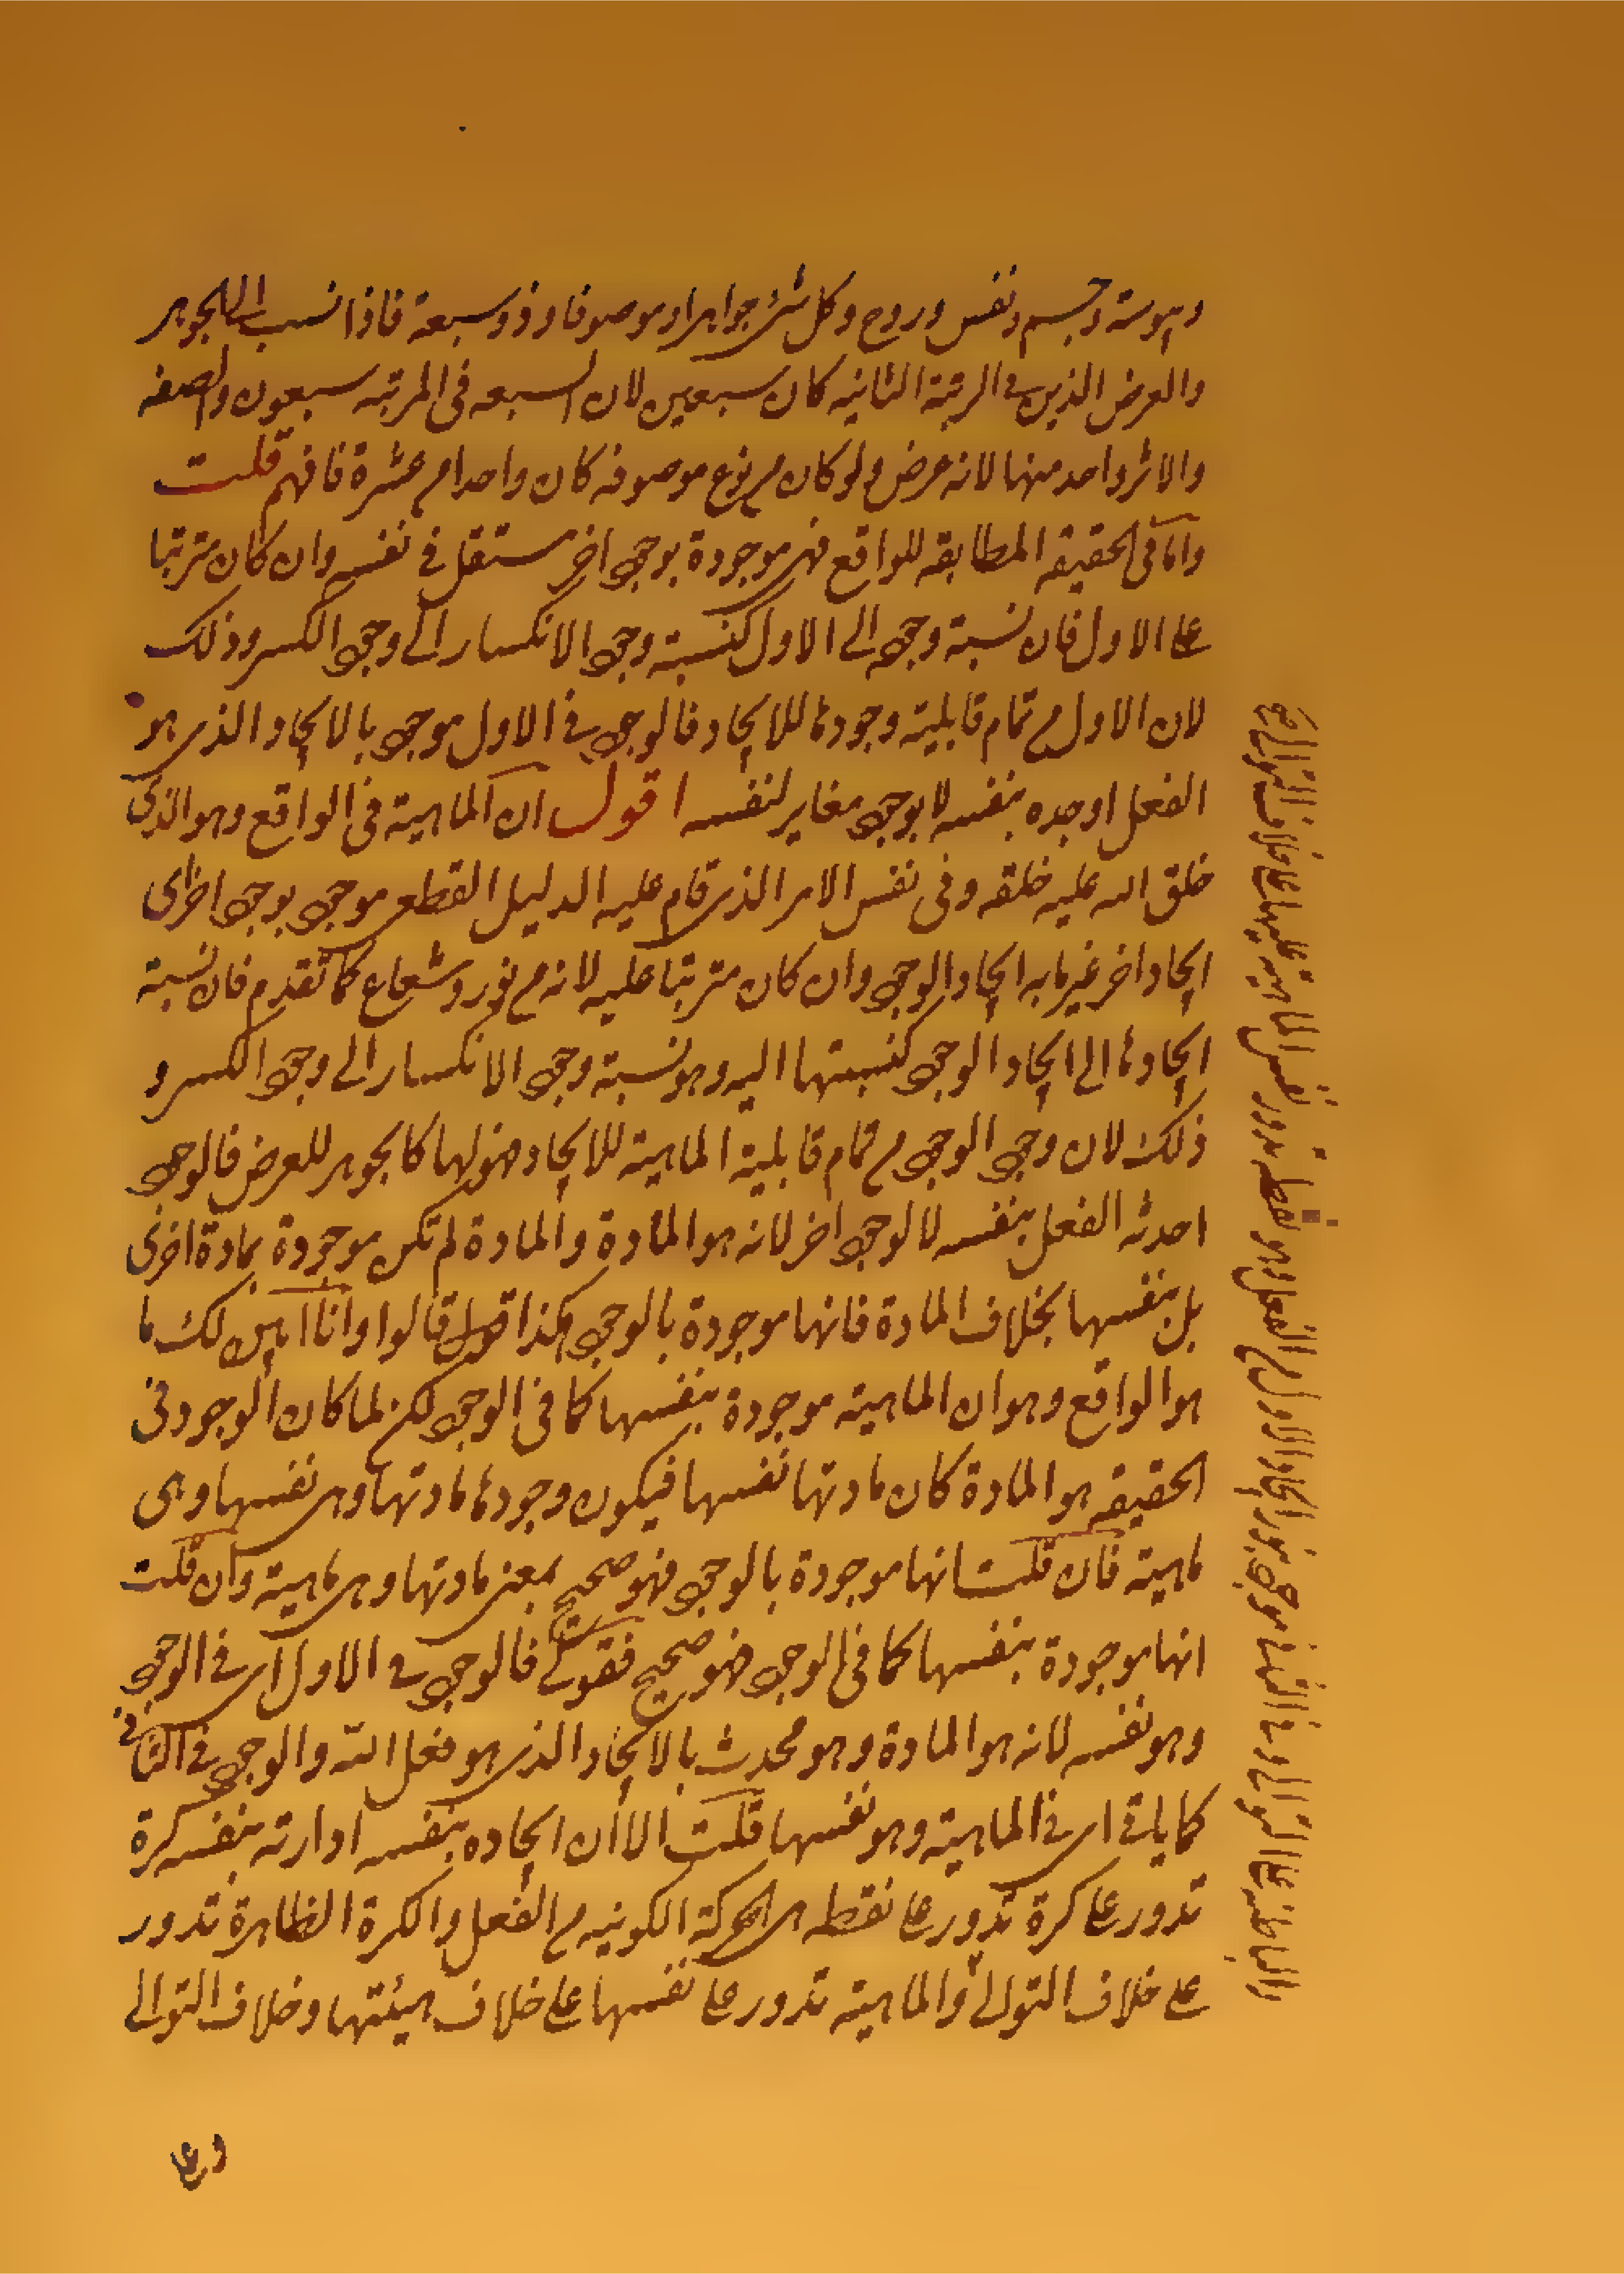 وهو ستة وجسم ونفس وروح وكل شئ جواهرا وموصوفا وذو سبعة فاذا نسب الى الجوهر
والعرض الذين في الرتبة الثانيه كان سبعين لان السبعه فى المرتبه سبعون والصفه
والاثر واحد منها لانه عرض ولو كان من نوع موصوفه كان واحدا من عشرة فافهم قلت
واما فى الحقيقه المطابقه للواقع فهى موجودة بوجود اخر مستقل فى نفسه وان كان مترتبا
على الاول فان نسبة وجوده الى الاول كنسبة وجود الانكسار الى وجود الكسر وذلك
لان الاول من تمام قابلية وجودها للايجاد فالوجود فى الاول موجود بالايجاد الذى هو
الفعل اوجده بنفسه لا بوجود مغاير لنفسه اقول ان الماهية فى الواقع وهو الذى
خلق الله عليه خلقه وفى نفس الامر الذى قام عليه الدليل القطعى موجود بوجود اخر اى
ايجاد اخر غير ما به ايجاد الوجود وان كان مترتبا عليه لانه من نور وشعاع كما تقدم فان نسبة
ايجادها الى ايجاد الوجود كنسبتها اليه وهو نسبة وجود الانكسار الى وجود الكسر و
ذلك لان وجود الوجود من تمام قابلية الماهية للايجاد فهو لها كالجوهر للعرض فالوجود
احدثه الفعل بنفسه لا لوجود اخر لانه هو المادة والمادة لم تكن موجودة بمادة اخرى
بل بنفسها بخلاف المادة فانها موجودة بالوجود هكذا قالوا وانا ابين لك ما
هو الواقع وهو ان الماهية موجودة بنفسها كما فى الوجود لكن لما كان الوجود فى
الحقيقه هو المادة كان مادتها نفسها فيكون وجودها مادتها وهى نفسها وهى
ماهية فان قلت انها موجودة بالوجود فهو صحيح بمعنى مادتها وهى ماهية وان قلت
انها موجودة بنفسها كما فى الوجود فهو صحيح فقولى فالوجود فى الاول اى فى الوجود
وهو نفسه لانه هو المادة وهو محدث بالايجاد الذى هو فعل الله والوجود فى الثانى
كما ياتى اى فى الماهية وهو نفسها قلت الا ان ايجاده بنفسه ادارته بنفسه كرة
تدور على كرة تدور على نقطه هى الحركة الكونيه من الفعل والكرة الظاهرة تدور
على خلاف التوالى والماهية تدور على نفسها على خلاف هيئتها وخلاف التوالى
وعلى